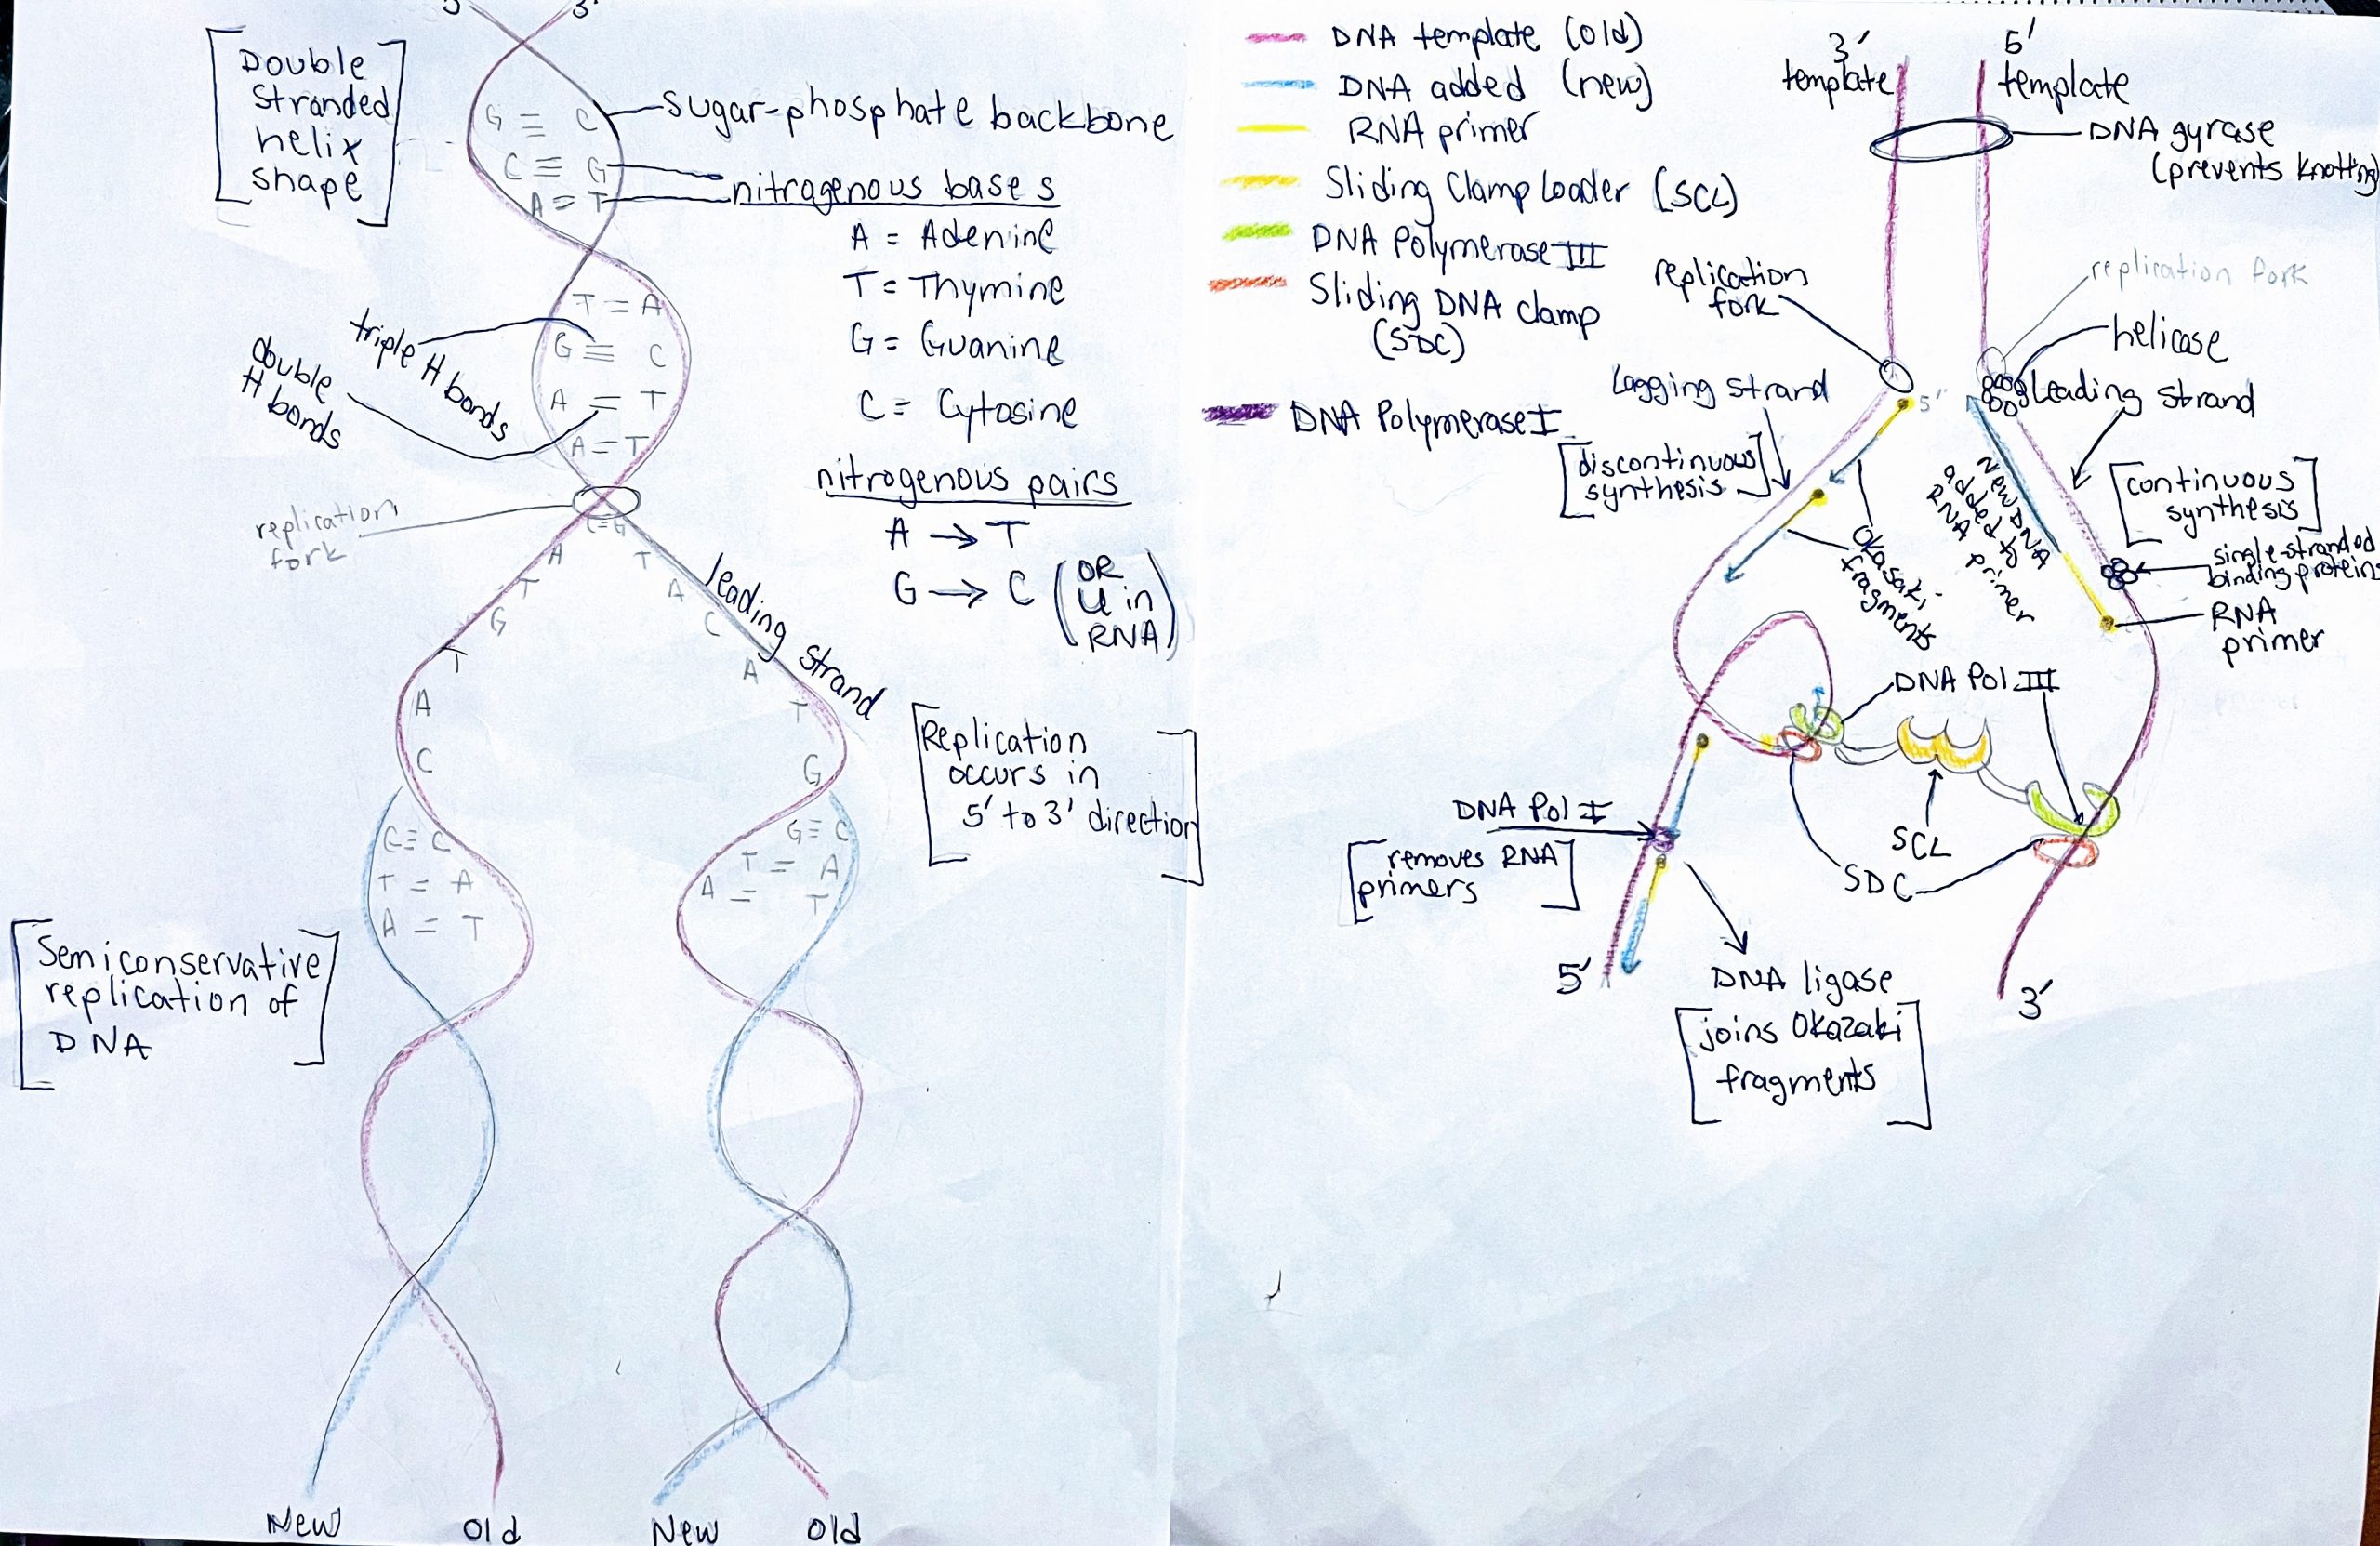 5'
3'
Double
Stranded
helix
shape
G ≡ C
C ≡ G
A = T
sugar-phosphate backbone
nitrogenous bases
A = Adenine
T = Thymine
G = Guanine
C = Cytosine
T = A
G ≡ C
A = T
A = T
triple H bonds
double
H bonds
nitrogenous pairs
A → T
G → C (OR
U in
RNA)
replication
fork
C=G
A
T
G
T
A
C
T
A
C
A
T
G
leading strand
Replication
occurs in
5' to 3' direction
C ≡ C
T = A
A = T
G ≡ C
T = A
A = T
Semiconservative
replication of
DNA
New
Old
New
Old
DNA template (old)
DNA added (new)
RNA primer
Sliding Clamp Loader (SCL)
DNA Polymerase III
Sliding DNA clamp
(SDC)
DNA Polymerase I
3'
template
5'
template
DNA gyrase
(prevents knotting)
replication
fork
replication fork
helicase
Lagging strand
5'
leading strand
discontinuous
synthesis
continuous
synthesis
Okasaki
fragments
New DNA
added to
RNA primer
single-stranded
binding proteins
RNA
primer
DNA Pol III
SCL
SDC
DNA Pol I
removes RNA
primers
5'
3'
DNA ligase
joins Okazaki
fragments